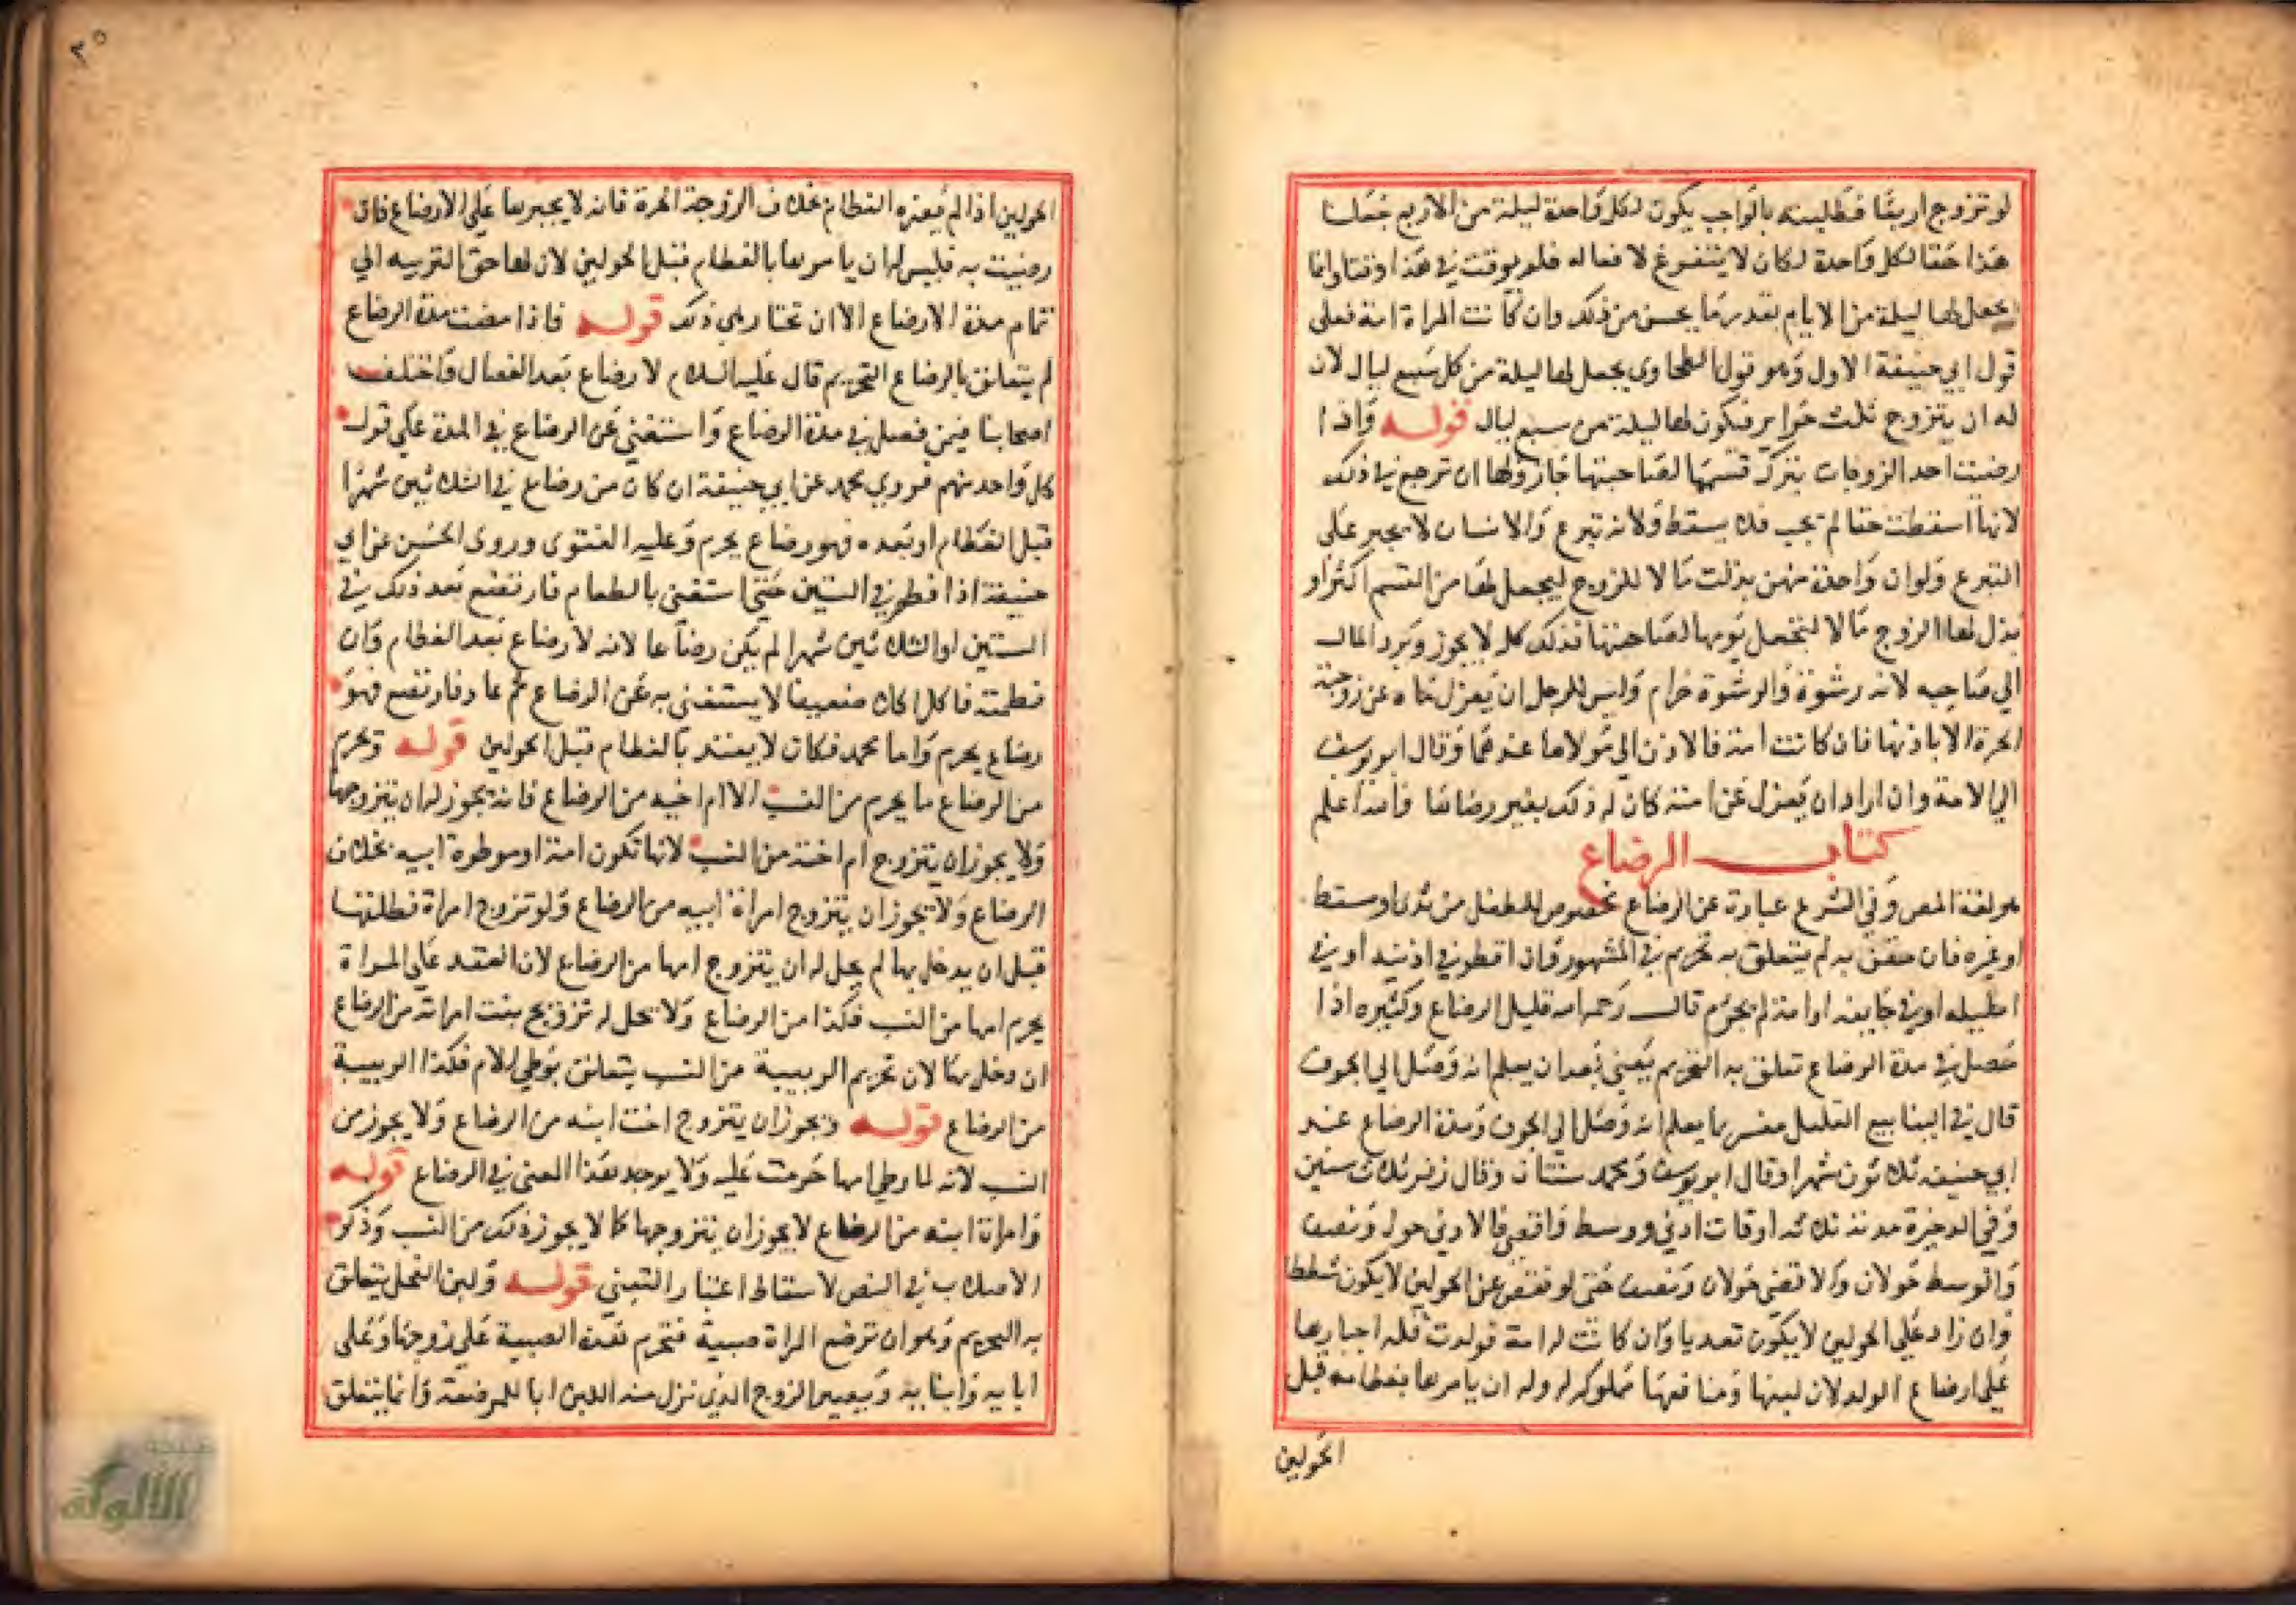 لو تزوج اربعا فطلبته بالواجب يكون لكل واحدة ليلة من الاربع فجعلنا
هذا حقا لكل واحدة لكان لا يتفرغ لافعاله فلم يوقت في هذا وقتا وانما
يجعل لها ليلة من الايام بقدر ما يحسن من ذلك وان كانت المراة امة فعلى
قول ابي حنيفة الاول وهو قول الطحاوي يجعل لها ليلة من كل سبع ليال لان
له ان يتزوج ثلث حراير فيكون لها ليلة من سبع ليال قوله واذا
رضيت احد الزوجات بترك قسمها لصاحبتها جاز ولها ان ترجع في ذلك
لانها اسقطت حقا لم يجب فلا يسقط ولانه تبرع والانسان لا يجبر على
التبرع ولو ان واحدة منهن بذلت مالا للزوج ليجعل لها من القسم اكثر او
بذل لها الزوج مالا لتجعل يومها لصاحبتها فذلك كله لا يجوز ويرد المال
الي صاحبه لانه رشوة والرشوة حرام وليس للرجل ان يعزل ماه عن زوجته
الحرة الا باذنها فان كانت امة فالاذن الي مولاها عندهما وقال ابو يوسف
الي الامة وان اراد ان يعزل عن امته كان له ذلك بغير رضاها والله اعلم
كتاب الرضاع
هو لغة المص وفي الشرع عبارة عن الرضاع مخصوص للطفل من ثدي او سعط
او غيره فان حقن به لم يتعلق به تحريم في المشهور وان اقطر في اذنيه او في
احليله او في جايفة او امة لم يحرم قال رحمه الله قليل الرضاع وكثيره اذا
حصل في مدة الرضاع تعلق به التحريم يعني بعد ان يعلم انه وصل الي الجوف
قال في الينابيع القليل مفسر بما يعلم انه وصل الي الجوف ومدة الرضاع عند
ابي حنيفة ثلاثون شهرا وقال ابو يوسف ومحمد سنتان وقال زفر ثلاث سنين
وفي الذخيرة مدته ثلاثه اوقات ادني ووسط واقصي فالادني حول ونصف
والوسط حولان والاقصي حولان ونصف حتي لو نقص عن الحولين لا يكون شططا
وان زاد علي الحولين لا يكون تعديا وان كانت له امة فولدت فله اجبارها
علي ارضاع الولد لان لبنها ومنافعها مملوكة له وله ان يامرها بفطامه قبل
الحولين
٣٥
الحولين اذا لم يضره الفطام بخلاف الزوجة الحرة فانه لا يجبرها علي الارضاع فان
رضيت به فليس له ان يامرها بالفطام قبل الحولين لان لها حق التربيه الي
تمام مدة الارضاع الا ان تختار هي ذلك قوله فاذا مضت مدة الرضاع
لم يتعلق بالرضاع التحريم قال عليه السلام لا رضاع بعد الفصال واختلف
اصحابنا فيمن فصل في مدة الرضاع واستغني عن الرضاع في المدة علي قول
كل واحد منهم فروي محمد عن ابي حنيفة ان كان من رضاع في الثلاثين شهرا
قبل الفطام او بعده فهو رضاع يحرم وعليه الفتوى وروى الحسن عن ابي
حنيفة اذا فطم في السنتين حتي استغني بالطعام فارتضع بعد ذلك في
السنتين او الثلاثين شهرا لم يكن رضاعا لانه لا رضاع بعد الفطام وان
فطمته فاكل اكلا ضعيفا لا يستغني به عن الرضاع ثم عاد فارتضع فهو
رضاع يحرم واما محمد فكان لا يعتد بالفطام قبل الحولين قوله ويحرم
من الرضاع ما يحرم من النسب الا ام اخيه من الرضاع فانه يجوز له ان يتزوجها
ولا يجوز ان يتزوج ام اخته من النسب لانها تكون امه او موطوة ابيه بخلاف
الرضاع ولا يجوز ان يتزوج امراة ابيه من الرضاع ولو تزوج امراة فطلقها
قبل ان يدخل بها لم يحل له ان يتزوج امها من الرضاع لان العقد علي المراة
يحرم امها من النسب فكذا من الرضاع ولا يحل له تزويج بنت امراته من الرضاع
ان دخل بها لان تحريم الربيبة من النسب يتعلق بوطي الام فكذا الربيبة
من الرضاع قوله ويجوز ان يتزوج اخت ابنه من الرضاع ولا يجوز من
النسب لانه لما وطي امها حرمت عليه ولا يوجد هذا المعني في الرضاع قوله
وامراة ابنه من الرضاع لا يجوز ان يتزوجها كما لا يجوز ذلك من النسب وذكر
الاصلاب في النص لاسقاط اعتبار التبني قوله ولبن الفحل يتعلق
به التحريم وهو ان ترضع المراة صبية فتحرم هذه الصبية علي زوجها وعلى
ابايه وابنايه ويصير الزوج الذي نزل منه اللبن ابا للمرضعة وانما يتعلق
الألوكة